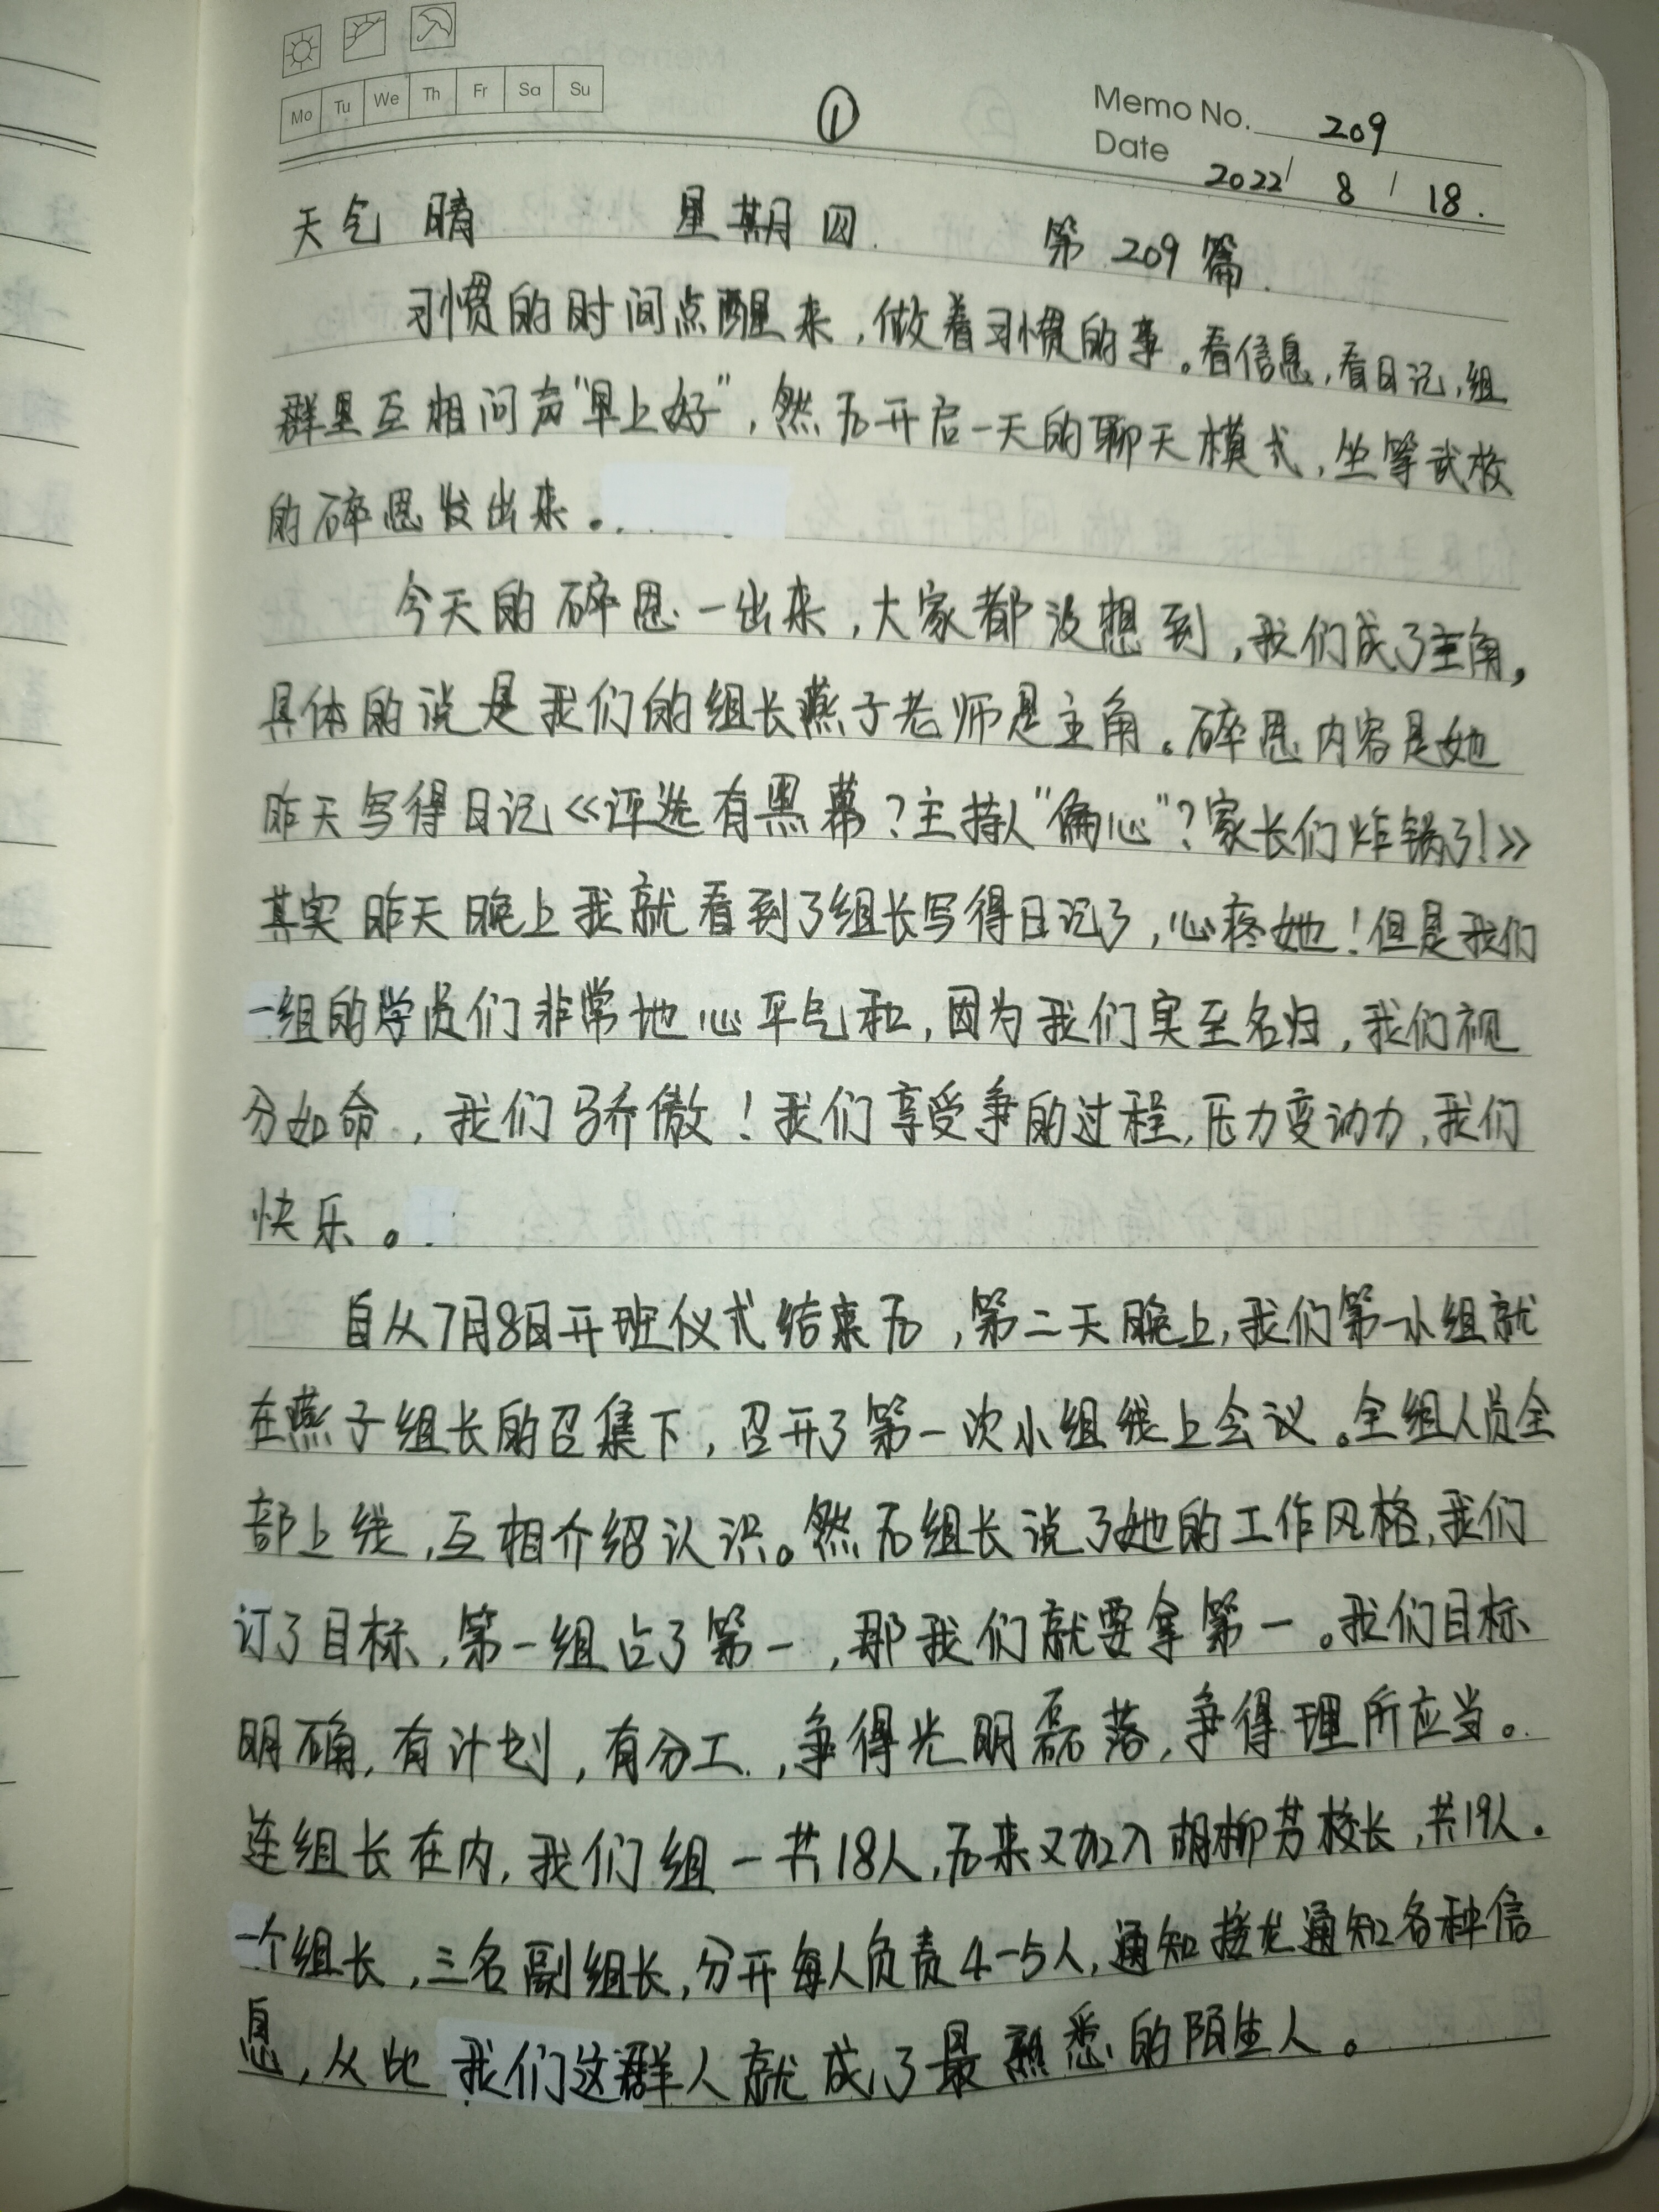 Mo Tu We Th Fr Sa Su
①
Memo No. 209
Date 2022/ 8 / 18.
天气 晴 星期四. 第 209 篇.
习惯的时间点醒来,做着习惯的事。看信息,看日记,组
群里互相问声"早上好",然后开启一天的聊天模式,坐等武校
的碎思发出来。
今天的碎思一出来,大家都没想到,我们成了主角,
具体的说是我们的组长燕子老师是主角。碎思内容是她
昨天写得日记《评选有黑幕?主持人"偏心"?家长们炸锅了!》
其实昨天晚上我就看到了组长写得日记了,心疼她!但是我们
一组的学员们非常地心平气和,因为我们实至名归,我们视
分如命,我们骄傲!我们享受争的过程,压力变动力,我们
快乐。
自从7月8日开班仪式结束后,第二天晚上,我们第一小组就
在燕子组长的召集下,召开了第一次小组线上会议。全组人员全
部上线,互相介绍认识。然后组长说了她的工作风格,我们
订了目标,第一组占了第一,那我们就要拿第一。我们目标
明确,有计划,有分工,争得光明磊落,争得理所应当。
连组长在内,我们组一共18人,后来又加入胡柳芳校长,共19人.
一个组长,三名副组长,分开每人负责4-5人,通知接龙通知各种信
息,从此我们这群人就成了最熟悉的陌生人。